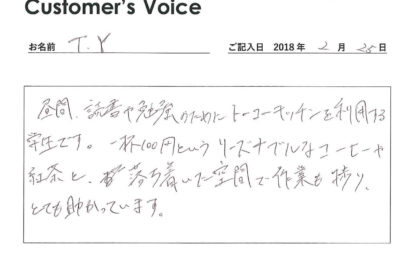 Customer's Voice
お名前 T.Y ご記入日 2018 年 2 月 25 日
昼間、読書や勉強のためにトーコーキッチンを利用する
学生です。一杯100円というリーズナブルなコーヒーや
紅茶と、落ち着いた空間で作業も捗り、
とても助かっています。